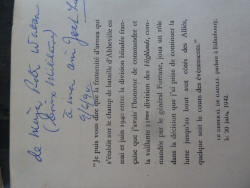 de Major Peter Watson
à mon ami
9/6/90
"Je puis vous dire que la fraternité d'armes qui
s'établit sur le champ de bataille d'Abbeville en
mai et juin 1940 entre la division blindée fran-
çaise que j'avais l'honneur de commander et
la vaillante 51ème division des Highlands, com-
mandée par le général Fortune, joua un rôle
dans la décision que j'ai prise de continuer la
lutte jusqu'au bout aux côtés des Alliés,
quoique soit le cours des événements."
LE GÉNÉRAL DE GAULLE
le 20 juin, 1942.